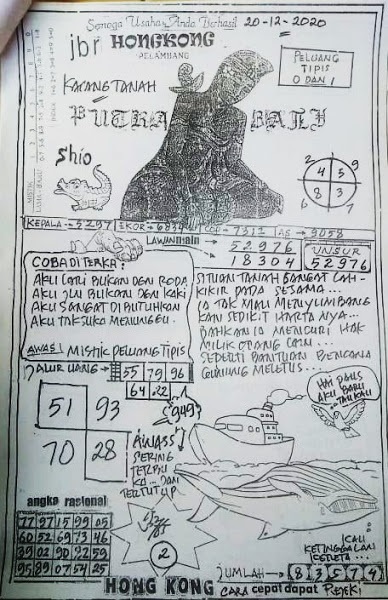 Semoga Usaha Anda Berhasil 20-12-2020
jbr HONGKONG
PELAMBANG
KACANG TANAH
PELUANG
TIPIS
0 DAN 1
PUTRA BALI
Shio
2 9
4 5
8 3
6 7
KEPALA = 5297 EKOR = 6834 COP = 7311 AS = 9058
LAWAN main
52976
18304
UNSUR
52976
COBA DI TERKA:
AKU LARI BUKAN DGN RODA
AKU JLN BUKAN DGN KAKI
AKU SANGAT DI BUTUHKAN
AKU TAK SUKA MENUNGGU.
AWAS! MISTIK PELUANG TIPIS
SI TUAN TANAH BANGAT LAH -
KIKIR PADA SESAMA...
IA TAK MAU MENYUMBANG
KAN SEDIKIT HARTA NYA...
BAHKAN IA MENCURI HAK
MILIK ORANG LAIN...
SEPERTI BANTUAN BENCANA
GUNUNG MELETUS...
JALUR UANG
55 79 96
64 22
51 93
70 28
HAI PAUS
AKU BARU
TAU KAU
SERING
TERBU
KA... DAN
TERTUTUP
angka rasional
77 97 15 99 05
60 52 69 13 46
39 02 90 22 59
95 89 07 54 25
2
KETINGGALAN
KERETA...
JUMLAH → 8 3 5 7 4
HONG KONG CARA cepat dapat REJEKI